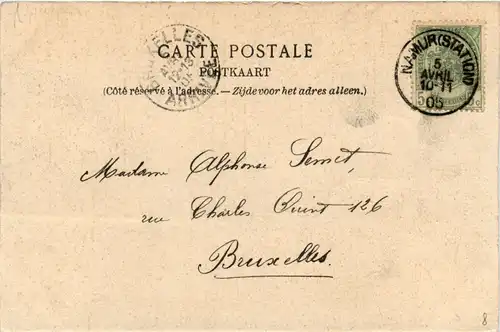 CARTE POSTALE
POSTKAART
(Côté réservé à l'adresse. — Zijde voor het adres alleen.)
BRUXELLES
AVRIL
12-13
ARRIVÉE
NAMUR (STATION)
5
AVRIL
10-11
05
Madame Alphonse Semet,
rue Charles Quint 126
Bruxelles.
8